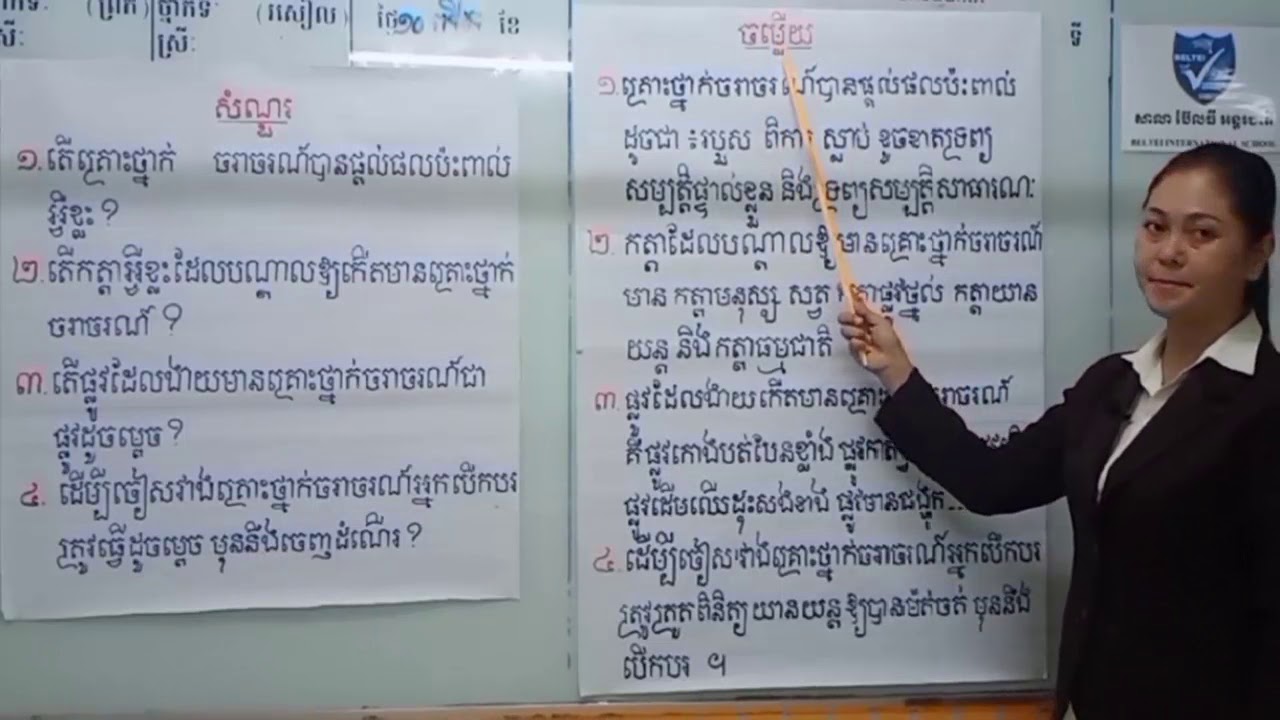 (ព្រឹក)
(រសៀល)
ស្រី:
ថ្ងៃ
ខែ
ទី
សំណួរ
១. តើគ្រោះថ្នាក់ ចរាចរណ៍បានផ្តល់ផលប៉ះពាល់
អ្វីខ្លះ ?
២. តើកត្តាអ្វីខ្លះដែលបណ្តាលឱ្យកើតមានគ្រោះថ្នាក់
ចរាចរណ៍ ?
៣. តើផ្លូវដែលងាយមានគ្រោះថ្នាក់ចរាចរណ៍ជា
ផ្លូវដូចម្តេច ?
៤. ដើម្បីចៀសវាងគ្រោះថ្នាក់ចរាចរណ៍អ្នកបើកបរ
ត្រូវធ្វើដូចម្តេច មុននឹងចេញដំណើរ ?
ចម្លើយ
១. គ្រោះថ្នាក់ចរាចរណ៍បានផ្តល់ផលប៉ះពាល់
ដូចជា ៖ របួស ពិការ ស្លាប់ ខូចខាតទ្រព្យ
សម្បត្តិផ្ទាល់ខ្លួន និងទ្រព្យសម្បត្តិសាធារណៈ
២. កត្តាដែលបណ្តាលឱ្យមានគ្រោះថ្នាក់ចរាចរណ៍
មាន កត្តាមនុស្ស សត្វ កត្តាផ្លូវថ្នល់ កត្តាយាន
យន្ត និងកត្តាធម្មជាតិ
៣. ផ្លូវដែលងាយកើតមានគ្រោះ ចរាចរណ៍
គឺ ផ្លូវកោងបត់បែនខ្លាំង
ផ្លូវដើមឈើដុះសងខាង ផ្លូវមានជង្ហុក...
៤. ដើម្បីចៀសវាងគ្រោះថ្នាក់ចរាចរណ៍អ្នកបើកបរ
ត្រូវត្រួតពិនិត្យយានយន្តឱ្យបានម៉ត់ចត់ មុននឹង
បើកបរ ។
BELTEI
សាលា ប៊ែលធី អន្តរជាតិ
BELTEI INTERNATIONAL SCHOOL